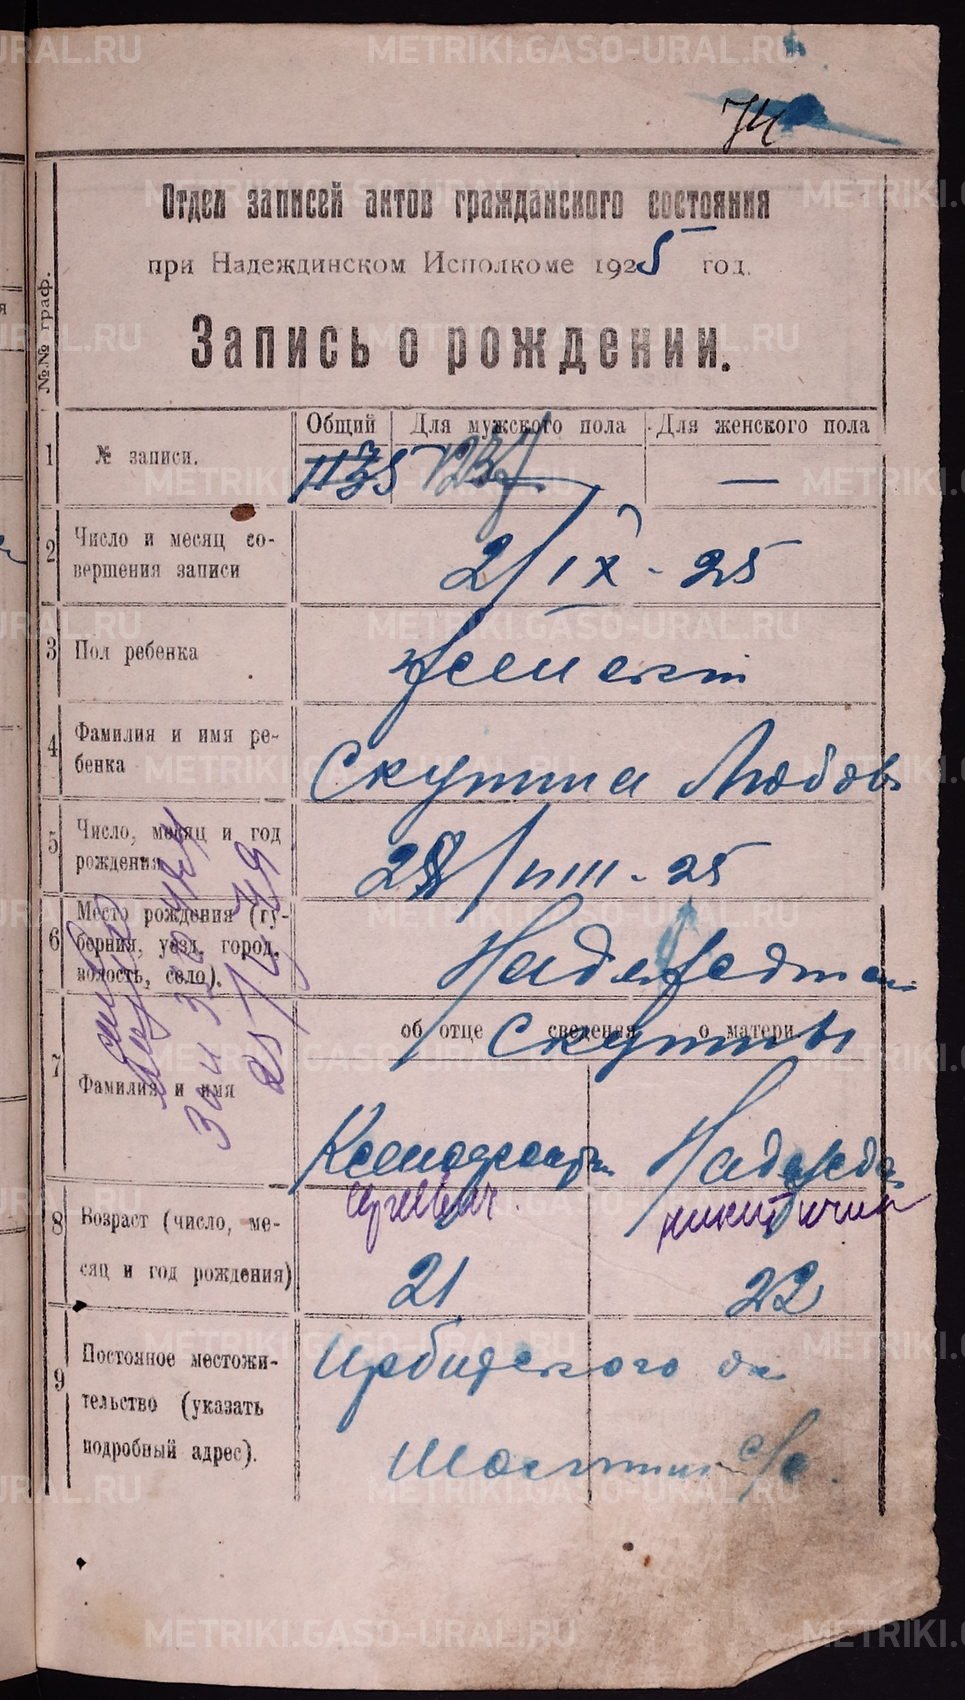 74
Отдел записей актов гражданского состояния
при Надеждинском Исполкоме 1925 год.
Запись о рождении.
№№ граф.
Общий Для мужского пола Для женского пола
1 № записи. —
2 Число и месяц со-
вершения записи
2/IX - 25
3 Пол ребенка
женский
4 Фамилия и имя ре-
бенка
Скутина Любовь
5 Число, месяц и год
рождения
28/VIII - 25
6 Место рождения (гу-
берния, уезд, город,
волость, село).
7 Фамилия и имя
об отце сведения о матери
Скутины
Надежда
Сергеевич
8 Возраст (число, ме-
сяц и год рождения)
21 22
9 Постояное местожи-
тельство (указать
подробный адрес).
Ирбитского ок
с/с.
METRIKI.GASO-URAL.RU